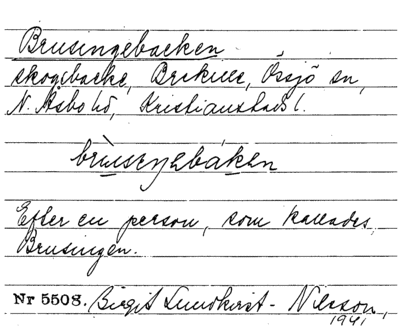 Brusingebacken
skogsbacke, Brekille, Örsjö sn,
N. Åsbo hd, Kristianstads l.
brùsiŋebáken
Efter en person, som kallades
Brusingen.
Nr 5508. Birgit Lundkvist-Nilsson,
1941